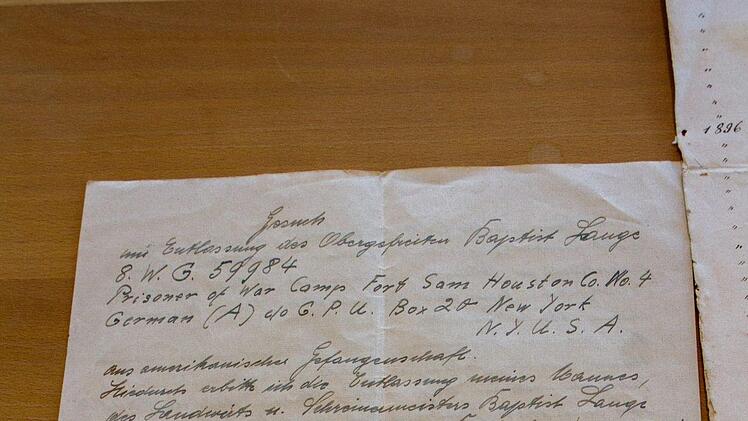 Gesuch
um Entlassung des Obergefreiten Baptist Lange
8. W. G. 59984
Prisoner of War Camp Fort Sam Houston Co. No. 4
German (A) c/o G. P. U. Box 20 New York
N. Y. U. S. A.
aus amerikanischer Gefangenschaft.
Hiedurch erbitte ich die Entlassung meines Mannes,
des Landwirts u. Schreinermeisters Baptist Lange
1896